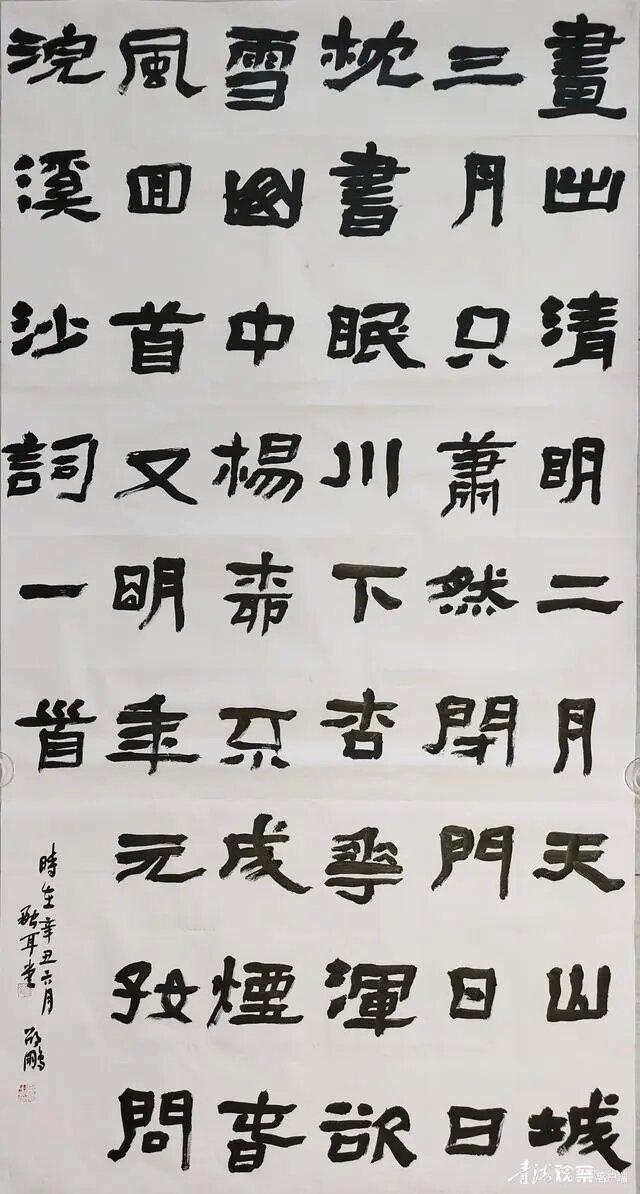 畫出清明二月天山城
三月只蕭然閉門日日
枕書眠川下杏華渾欲
雪山中楊柳不成煙春
風回首又明年元好問
浣溪沙詞一首
時在辛丑六月
耳堂 邵鵬
青海观察客户端